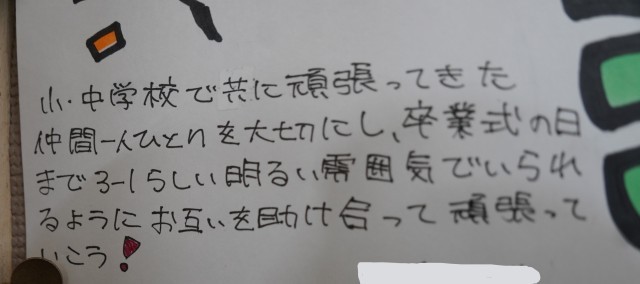 小・中学校で共に頑張ってきた
仲間一人ひとりを大切にし、卒業式の日
まで3-1らしい明るい雰囲気でいられ
るようにお互いを助け合って頑張って
いこう!